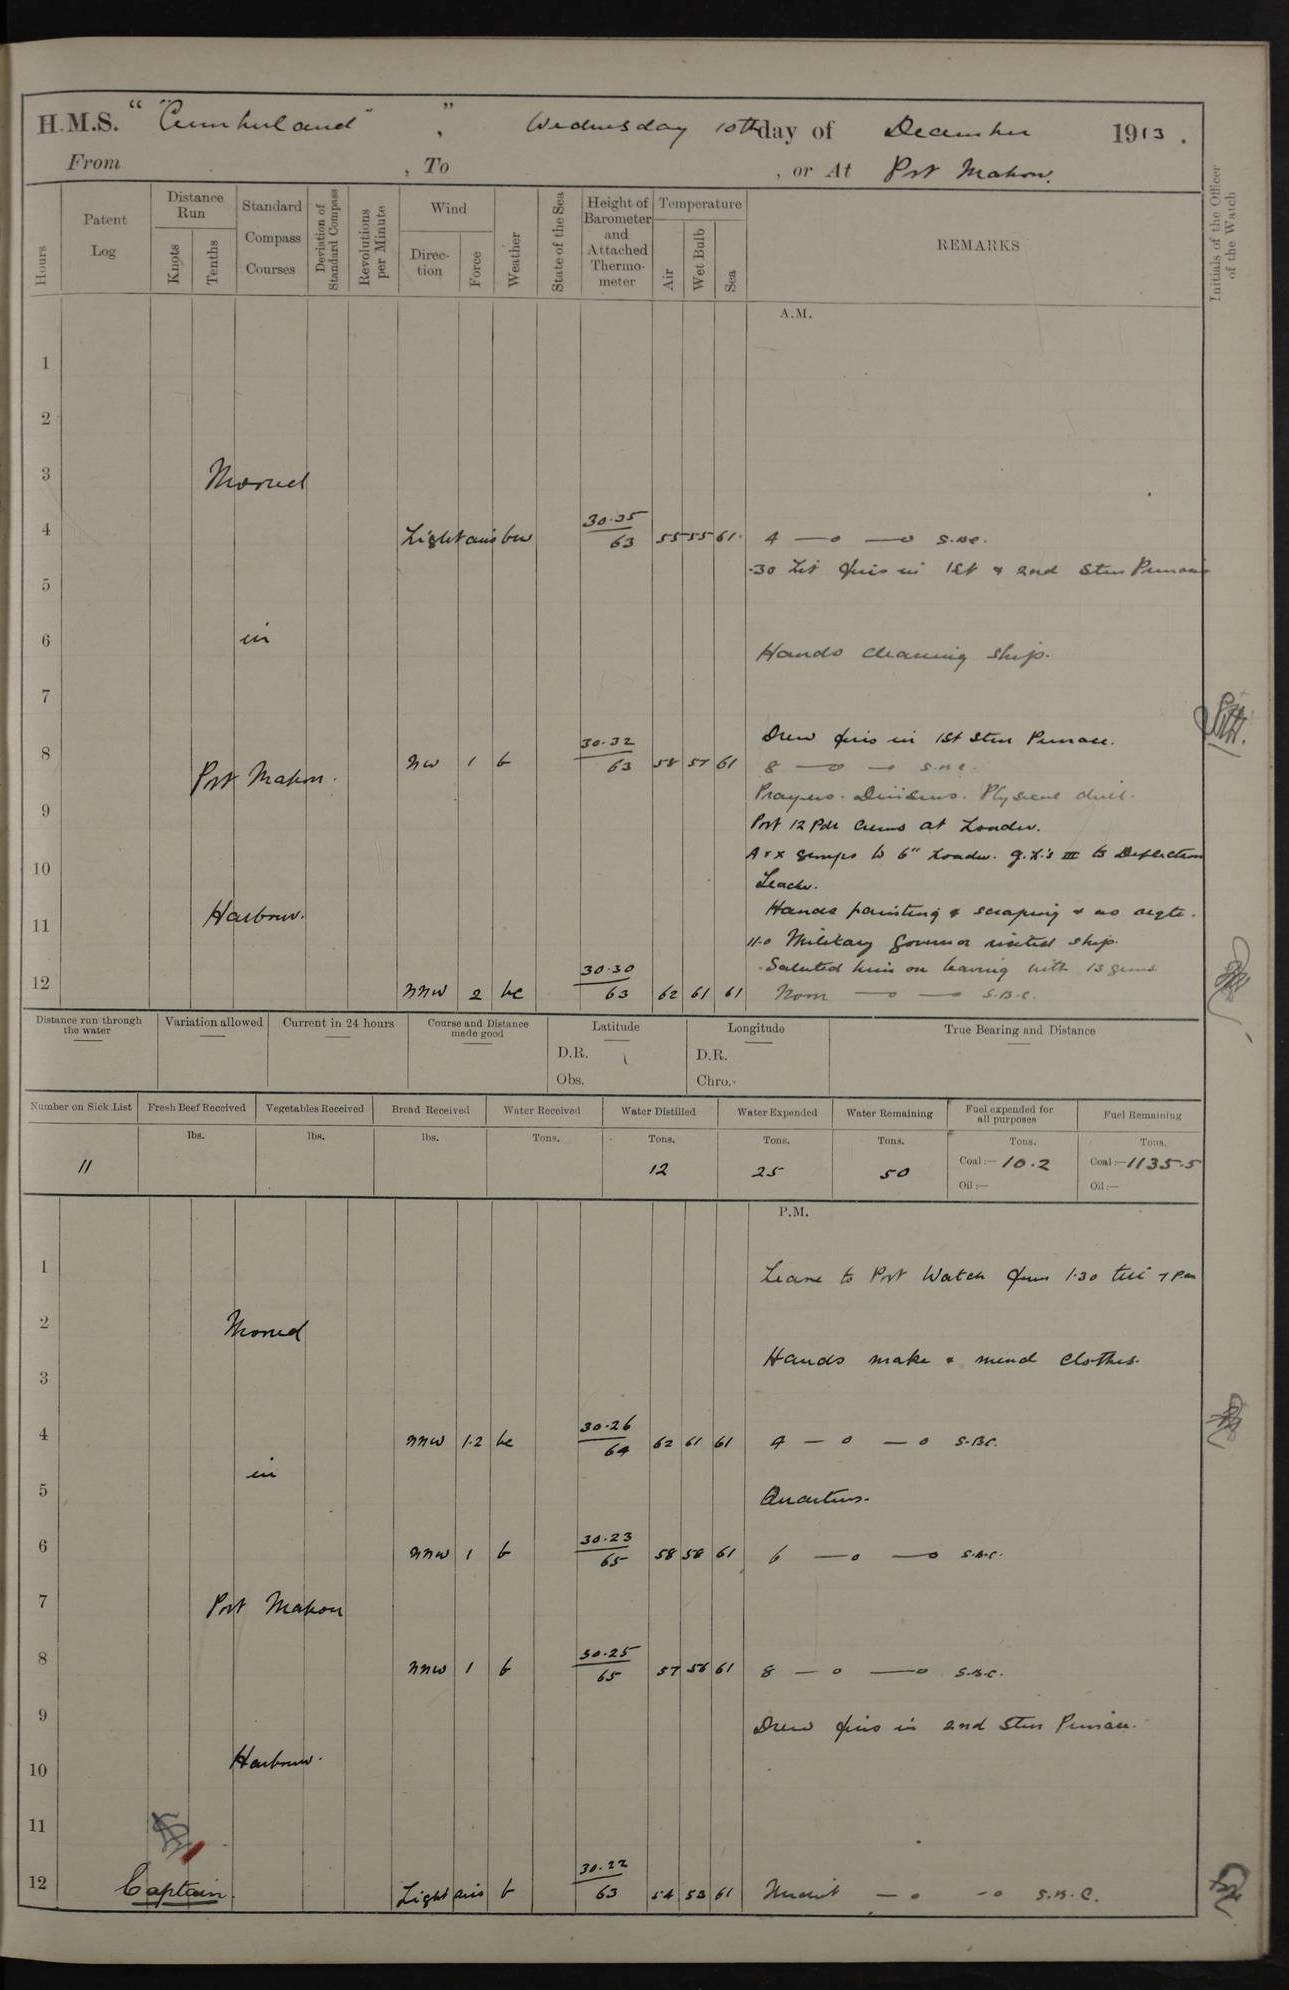 H.M.S. " "Cumberland" , " Wednesday 10th day of December 1913.
From , To , or At Port Mahon.
Hours
Patent Log
Distance Run
Knots
Tenths
Standard Compass Courses
Deviation of Standard Compass
Revolutions per Minute
Wind
Direction
Force
Weather
State of the Sea
Height of Barometer and Attached Thermometer
Temperature
Air
Wet Bulb
Sea
REMARKS
Initials of the Officer of the Watch
A.M.
1
2
3 Moored
4 Light airs bcw 30.35 63 55 55 61 4 —o —o S.B.C.
.30 Lit fires in 1st & 2nd Stm Pinnaces
5
6 in
Hands cleaning ship.
7
Drew fires in 1st Stm Pinnace.
8 NW 1 b 30.32 63 58 57 61 8 —o —o S.B.C.
Port Mahon.
Prayers. Divisions. Physical drill.
9
Port 12 Pdr Crews at Loader.
A & X groups to 6" Loader. G.L's III to Deflection
10
Teacher.
11 Harbour.
Hands painting & scraping &
11.0 Military Governor visited ship.
Saluted him on leaving with 13 guns
12 NNW 2 bc 30.30 63 62 61 61 Noon —o —o S.B.C.
Distance run through the water
Variation allowed
Current in 24 hours
Course and Distance made good
Latitude
D.R.
Obs.
Longitude
D.R.
Chro.
True Bearing and Distance
Number on Sick List
Fresh Beef Received
Vegetables Received
Bread Received
Water Received
Water Distilled
Water Expended
Water Remaining
Fuel expended for all purposes
Fuel Remaining
lbs. lbs. lbs. Tons. Tons. Tons. Tons. Tons. Tons.
11 12 25 50 Coal :— 10.2 Coal :— 1135.5
Oil :— Oil :—
P.M.
1 Leave to Port Watch from 1.30 till 7 Pm
2 Moored
Hands make & mend clothes.
3
4 NNW 1.2 bc 30.26 64 62 61 61 4 —o —o S.B.C.
in
5 Quarters.
6 NNW 1 b 30.23 65 58 58 61 6 —o —o S.B.C.
7 Port Mahon
8 NNW 1 b 30.25 65 57 56 61 8 —o —o S.B.C.
9 Drew fires in 2nd Stm Pinnace.
10 Harbour.
11
12 Captain. Light airs b 30.22 63 54 53 61 Midnit —o —o S.B.C.